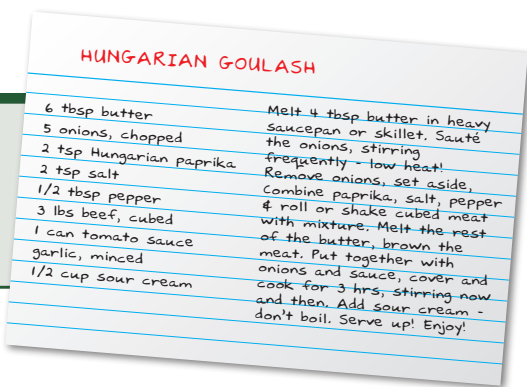 HUNGARIAN GOULASH
6 tbsp butter
5 onions, chopped
2 tsp Hungarian paprika
2 tsp salt
1/2 tbsp pepper
3 lbs beef, cubed
1 can tomato sauce
garlic, minced
1/2 cup sour cream
Melt 4 tbsp butter in heavy
saucepan or skillet. Sauté
the onions, stirring
frequently - low heat!
Remove onions, set aside,
Combine paprika, salt, pepper
& roll or shake cubed meat
with mixture. Melt the rest
of the butter, brown the
meat. Put together with
onions and sauce, cover and
cook for 3 hrs, stirring now
and then. Add sour cream -
don't boil. Serve up! Enjoy!